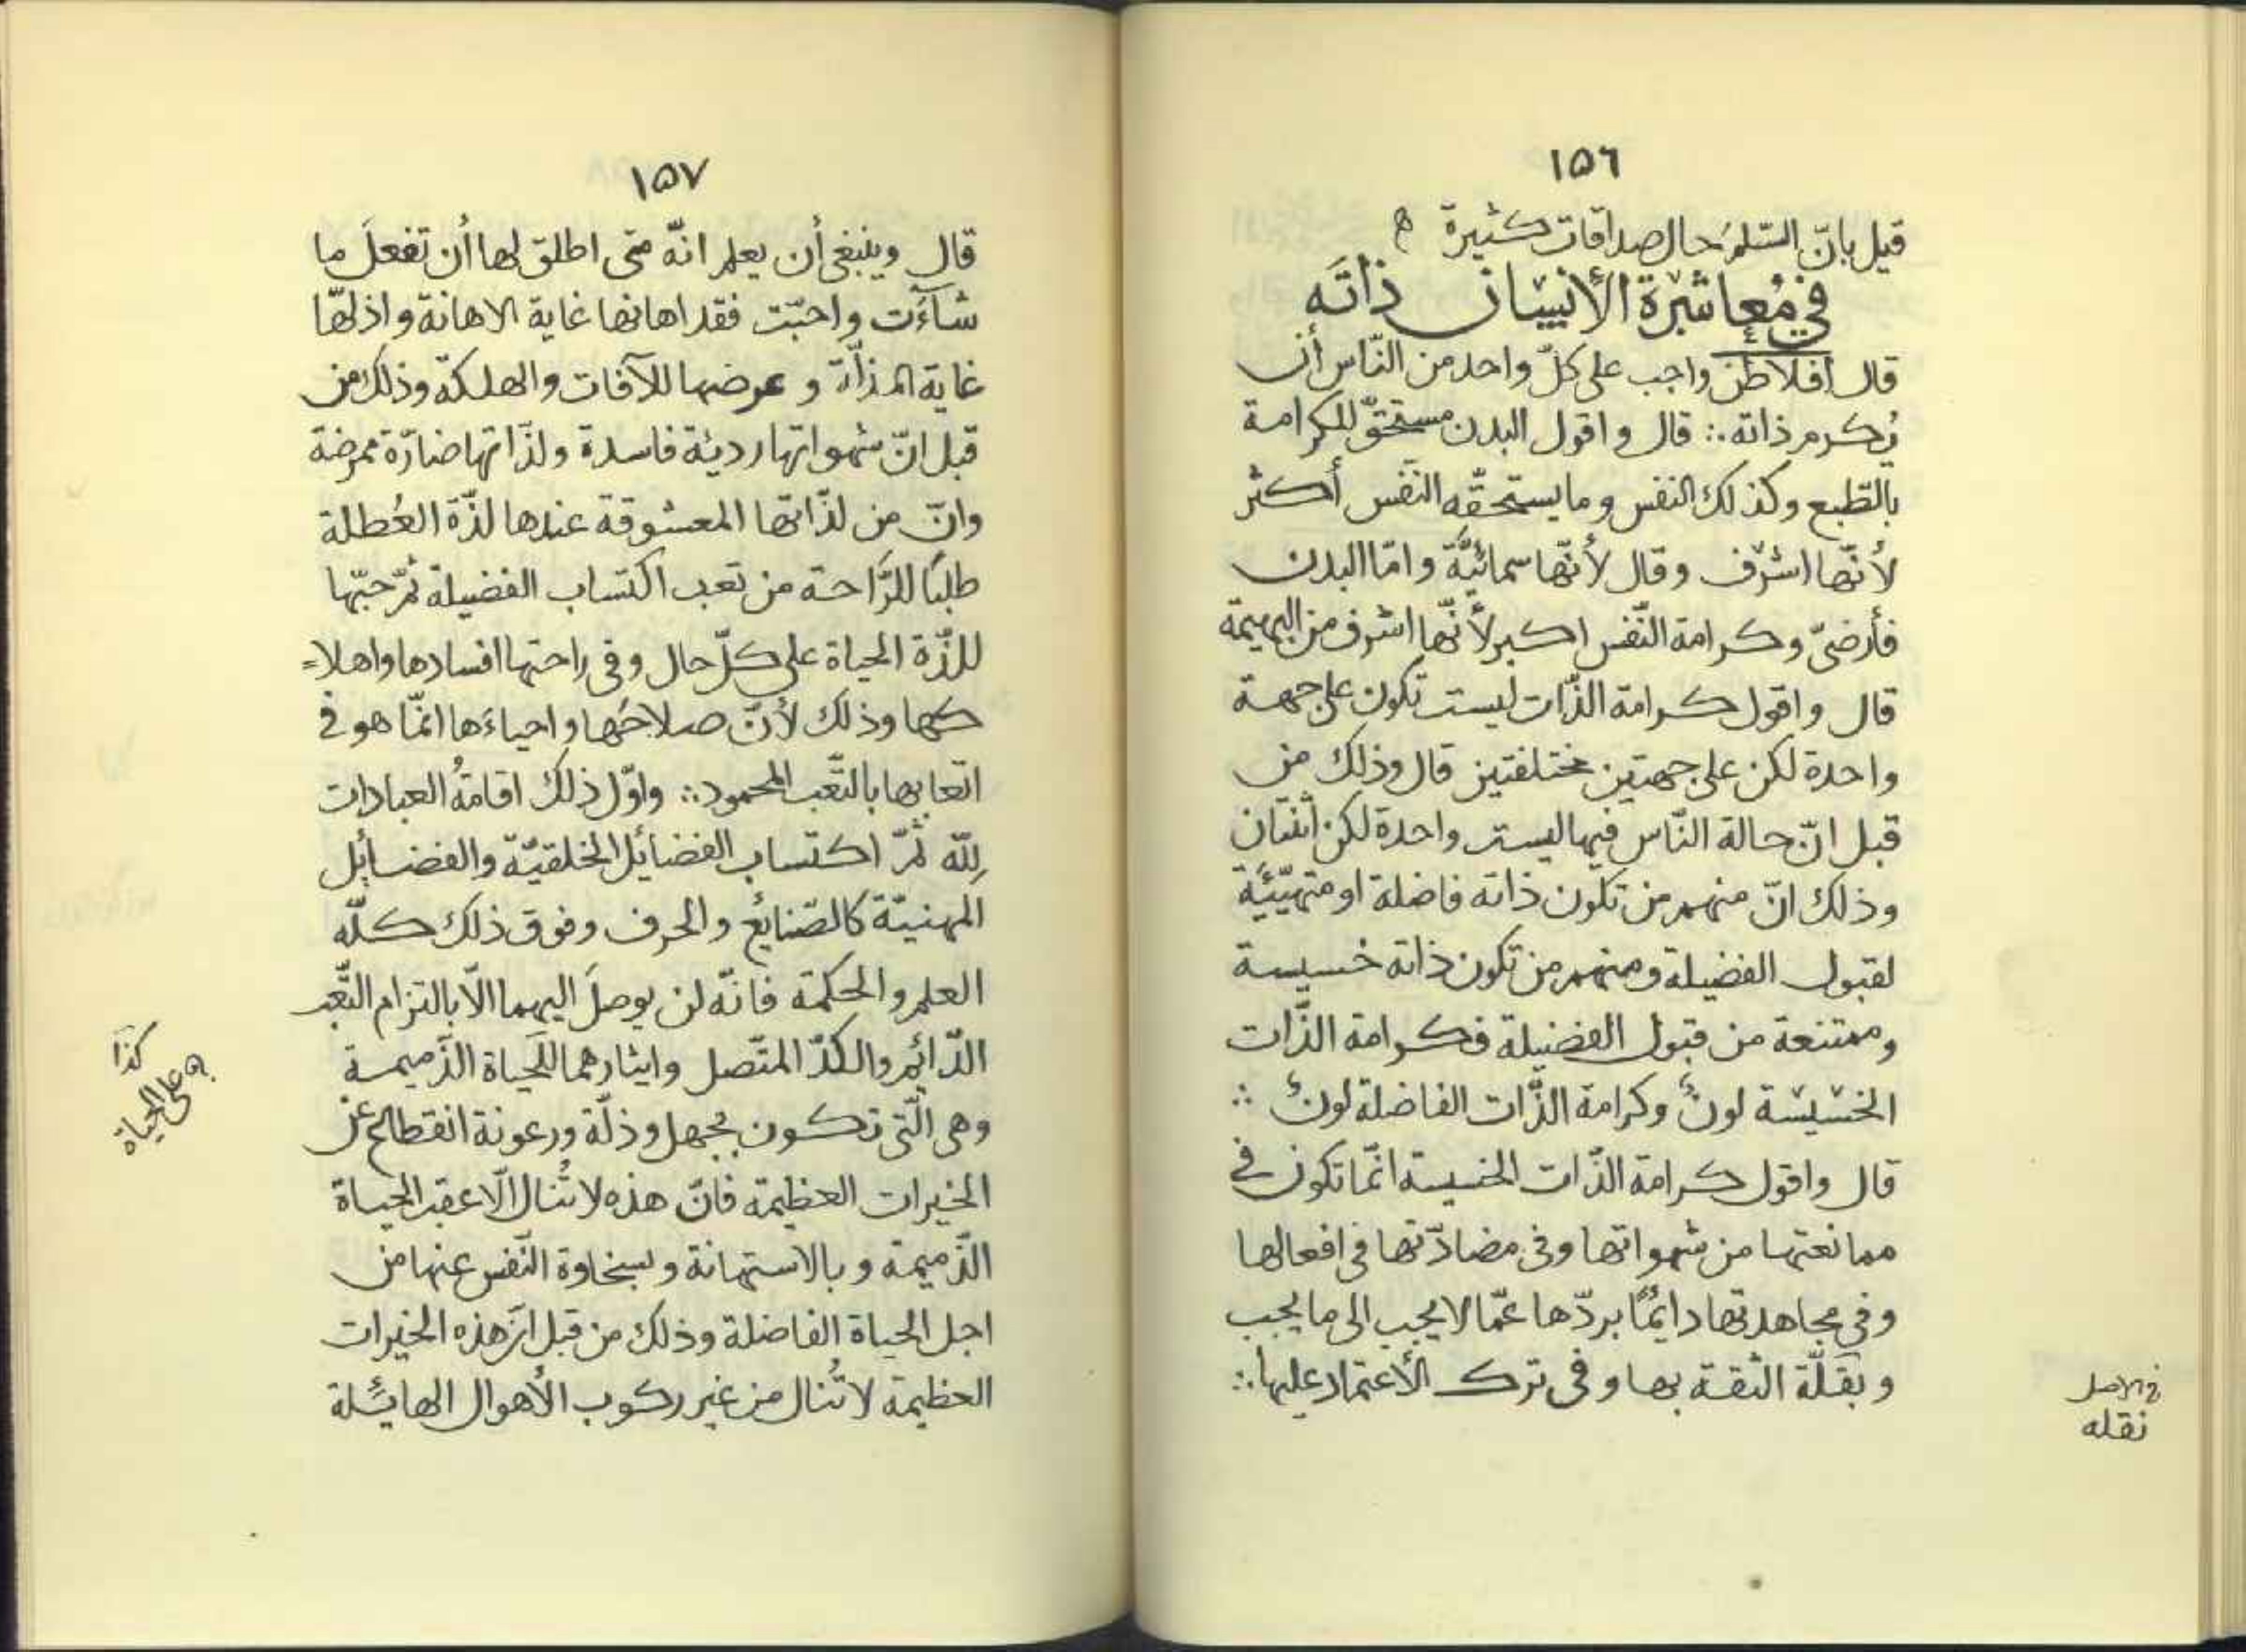 ١٥٦
قيل بانّ السّلمَ حال صداقات كثيرة ھ
في مُعاشرة الأنسان ذاتَه
قال افلاطن واجب على كلّ واحد من النّاس أن
يُكرم ذاته ∴ قال واقول البدن مستحقّ للكرامة
بالطّبع وكذلك النفس وما يستحقّه النّفس أكثر
لأنّها اشرف وقال لأنّها سمائيّة وامّا البدن
فأرضىّ وكرامة النّفس اكبر لأنّها اشرف من البهيمة
قال واقول كرامة الذّات ليست تكون على جهة
واحدة لكن على جهتين مختلفتين قال وذلك من
قبل انّ حالة النّاس فيها ليست واحدة لكن اثنتان
وذلك انّ منهم من تكون ذاته فاضلة او متهيّئة
لقبول الفضيلة ومنهم من تكون ذاته خسيسة
وممتنعة من قبول الفضيلة فكرامة الذّات
الخسيسة لونٌ وكرامة الذّات الفاضلة لونٌ ∴
قال واقول كرامة الذّات الخسيسة انّما تكون في
ممانعتها من شهواتها وفى مضادّتها فى افعالها
وفي مجاهدتها دايمًا بردّها عمّا لا يجب الى ما يجب
وبقلّة الثقة بها وفى ترك الأعتماد عليها ∴
في الاصل
نقله
١٥٧
قال وينبغى أن يعلم انّه متى اطلق لها أن تفعلَ ما
شاءَت واحبّت فقد اهانها غاية الاهانة واذلّها
غاية المذلّة وعرضها للآفات والهلكة وذلك من
قبل انّ شهواتها رديئة فاسدة ولذّاتها ضارّة ممرضة
وانّ من لذّاتها المعشوقة عندها لذّة العُطلة
طلبًا للرّاحة من تعب اكتساب الفضيلة ثمّ حبّها
للذّة الحياة على كلّ حال وفى راحتها افسادها واهلا=
كها وذلك لأنّ صلاحَها واحياءَها انّما هو في
اتعابها بالتّعب المحمود ∴ واوّل ذلك اقامةُ العبادات
لِلّه ثمّ اكتساب الفضائل الخلقيّة والفضائل
المهنيّة كالصّنائع والحرف وفوق ذلك كلّه
العلم والحكمة فانّه لن يوصلَ اليهما الاّ بالتزام التّعب
الدّائم والكدّ المتّصل وايثارهما للحياة الذّميمة
وهى الّتى تكون بجهل وذلّة ورعونة انقطاع عن
الخيرات العظيمة فانّ هذه لا تُنال الّا عقب الحياة
الذّميمة وبالاستهانة وبسخاوة النّفس عنها من
اجل الحياة الفاضلة وذلك من قبل انّ هذه الخيرات
العظيمة لا تُنال من غير ركوب الأهوال الهائلة
كذا
على الحياة